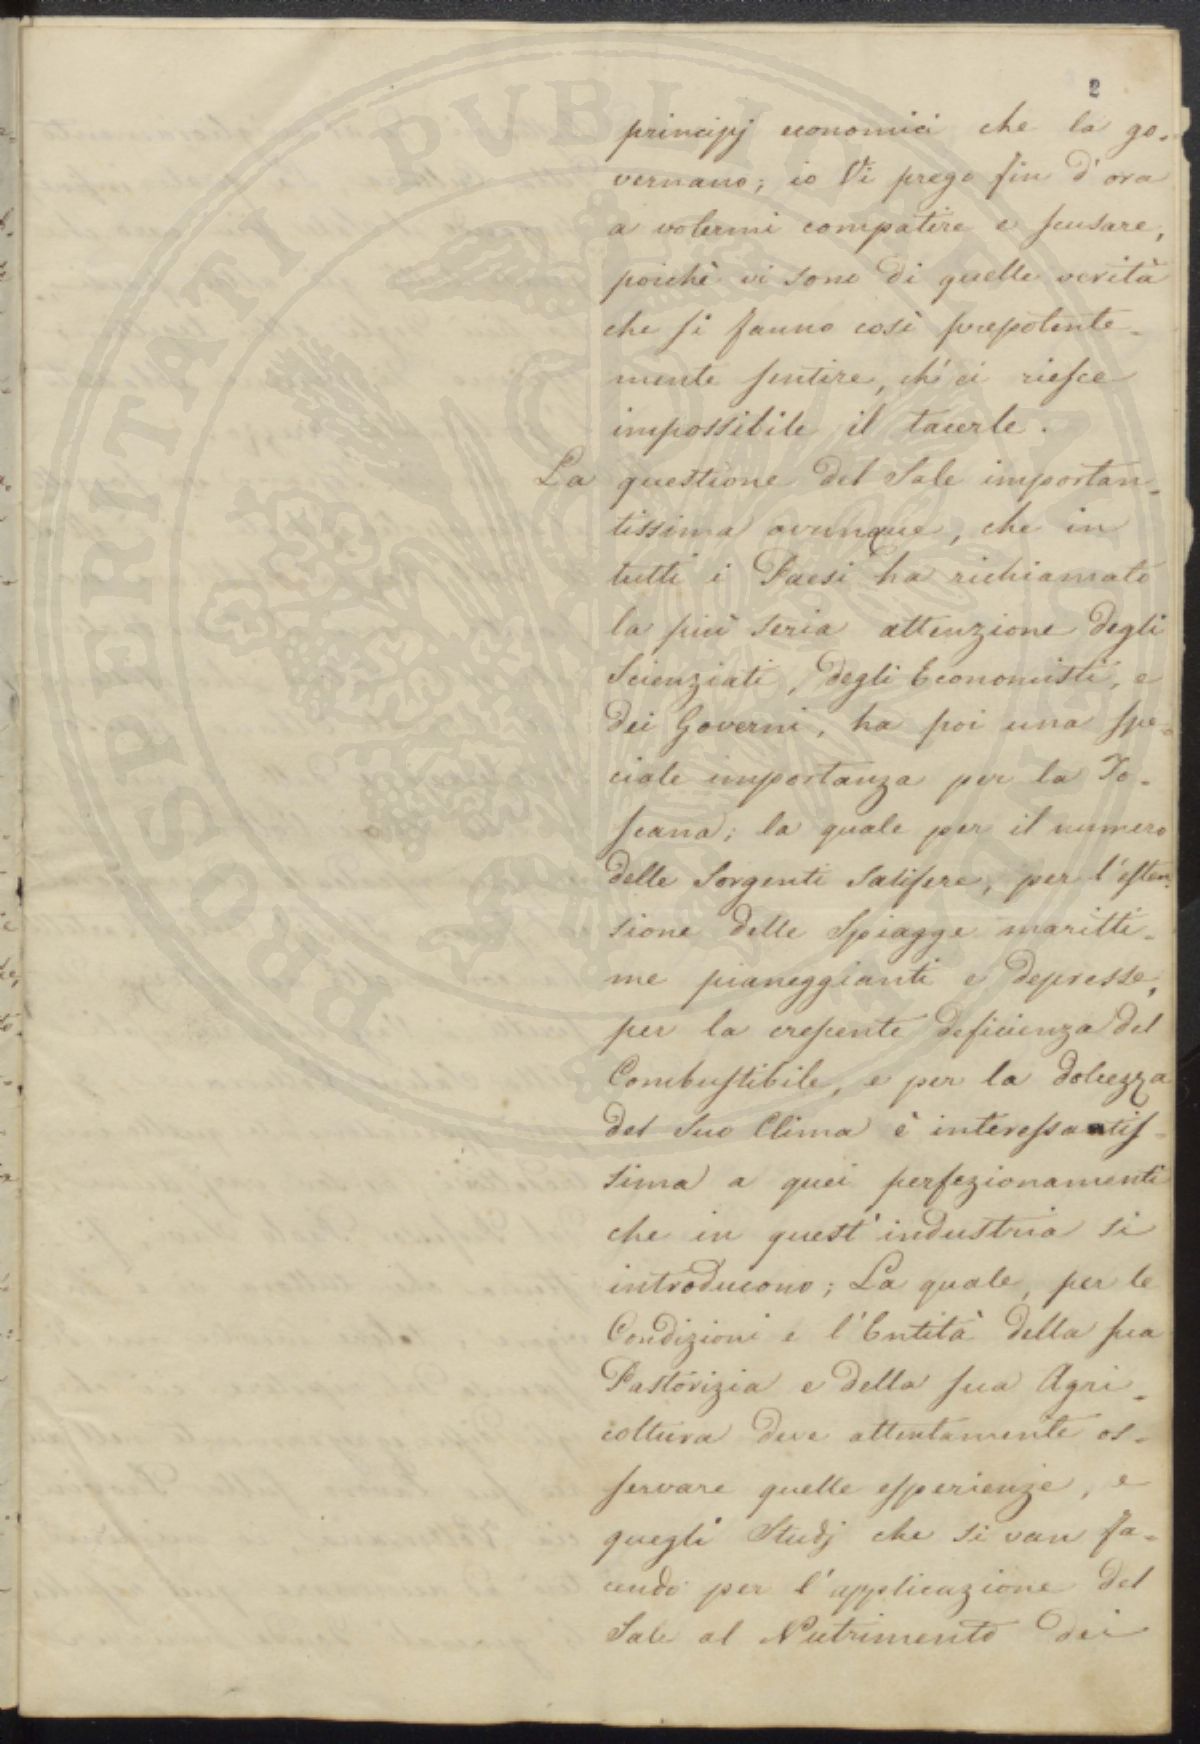 PROSPERITATI PVBLICAE AVGENDAE
2
principj economici che la go-
vernano; io Vi prego fin d'ora
a volermi compatire e scusare,
poichè vi sono di quelle verità
che si fanno così prepotente-
mente sentire, ch'ei riesce
impossibile il tacerle.
La questione del Sale importan-
tissima ovunque, che in
tutti i Paesi ha richiamato
la più seria attenzione degli
Scienziati, degli Economisti, e
dei Governi, ha poi una spe-
ciale importanza per la To-
scana; la quale per il numero
delle Sorgenti Salifere, per l'esten-
sione delle Spiagge maritti-
me pianeggianti e depresse,
per la crescente deficienza del
Combustibile, e per la dolcezza
del Suo Clima è interessantis-
sima a quei perfezionamenti
che in quest'industria si
introducono; La quale, per le
Condizioni e l'Entità della sua
Pastorizia e della sua Agri-
coltura deve attentamente os-
servare quelle esperienze, e
quegli Studj che si van fa-
cendo per l'applicazione del
Sale al Nutrimento dei